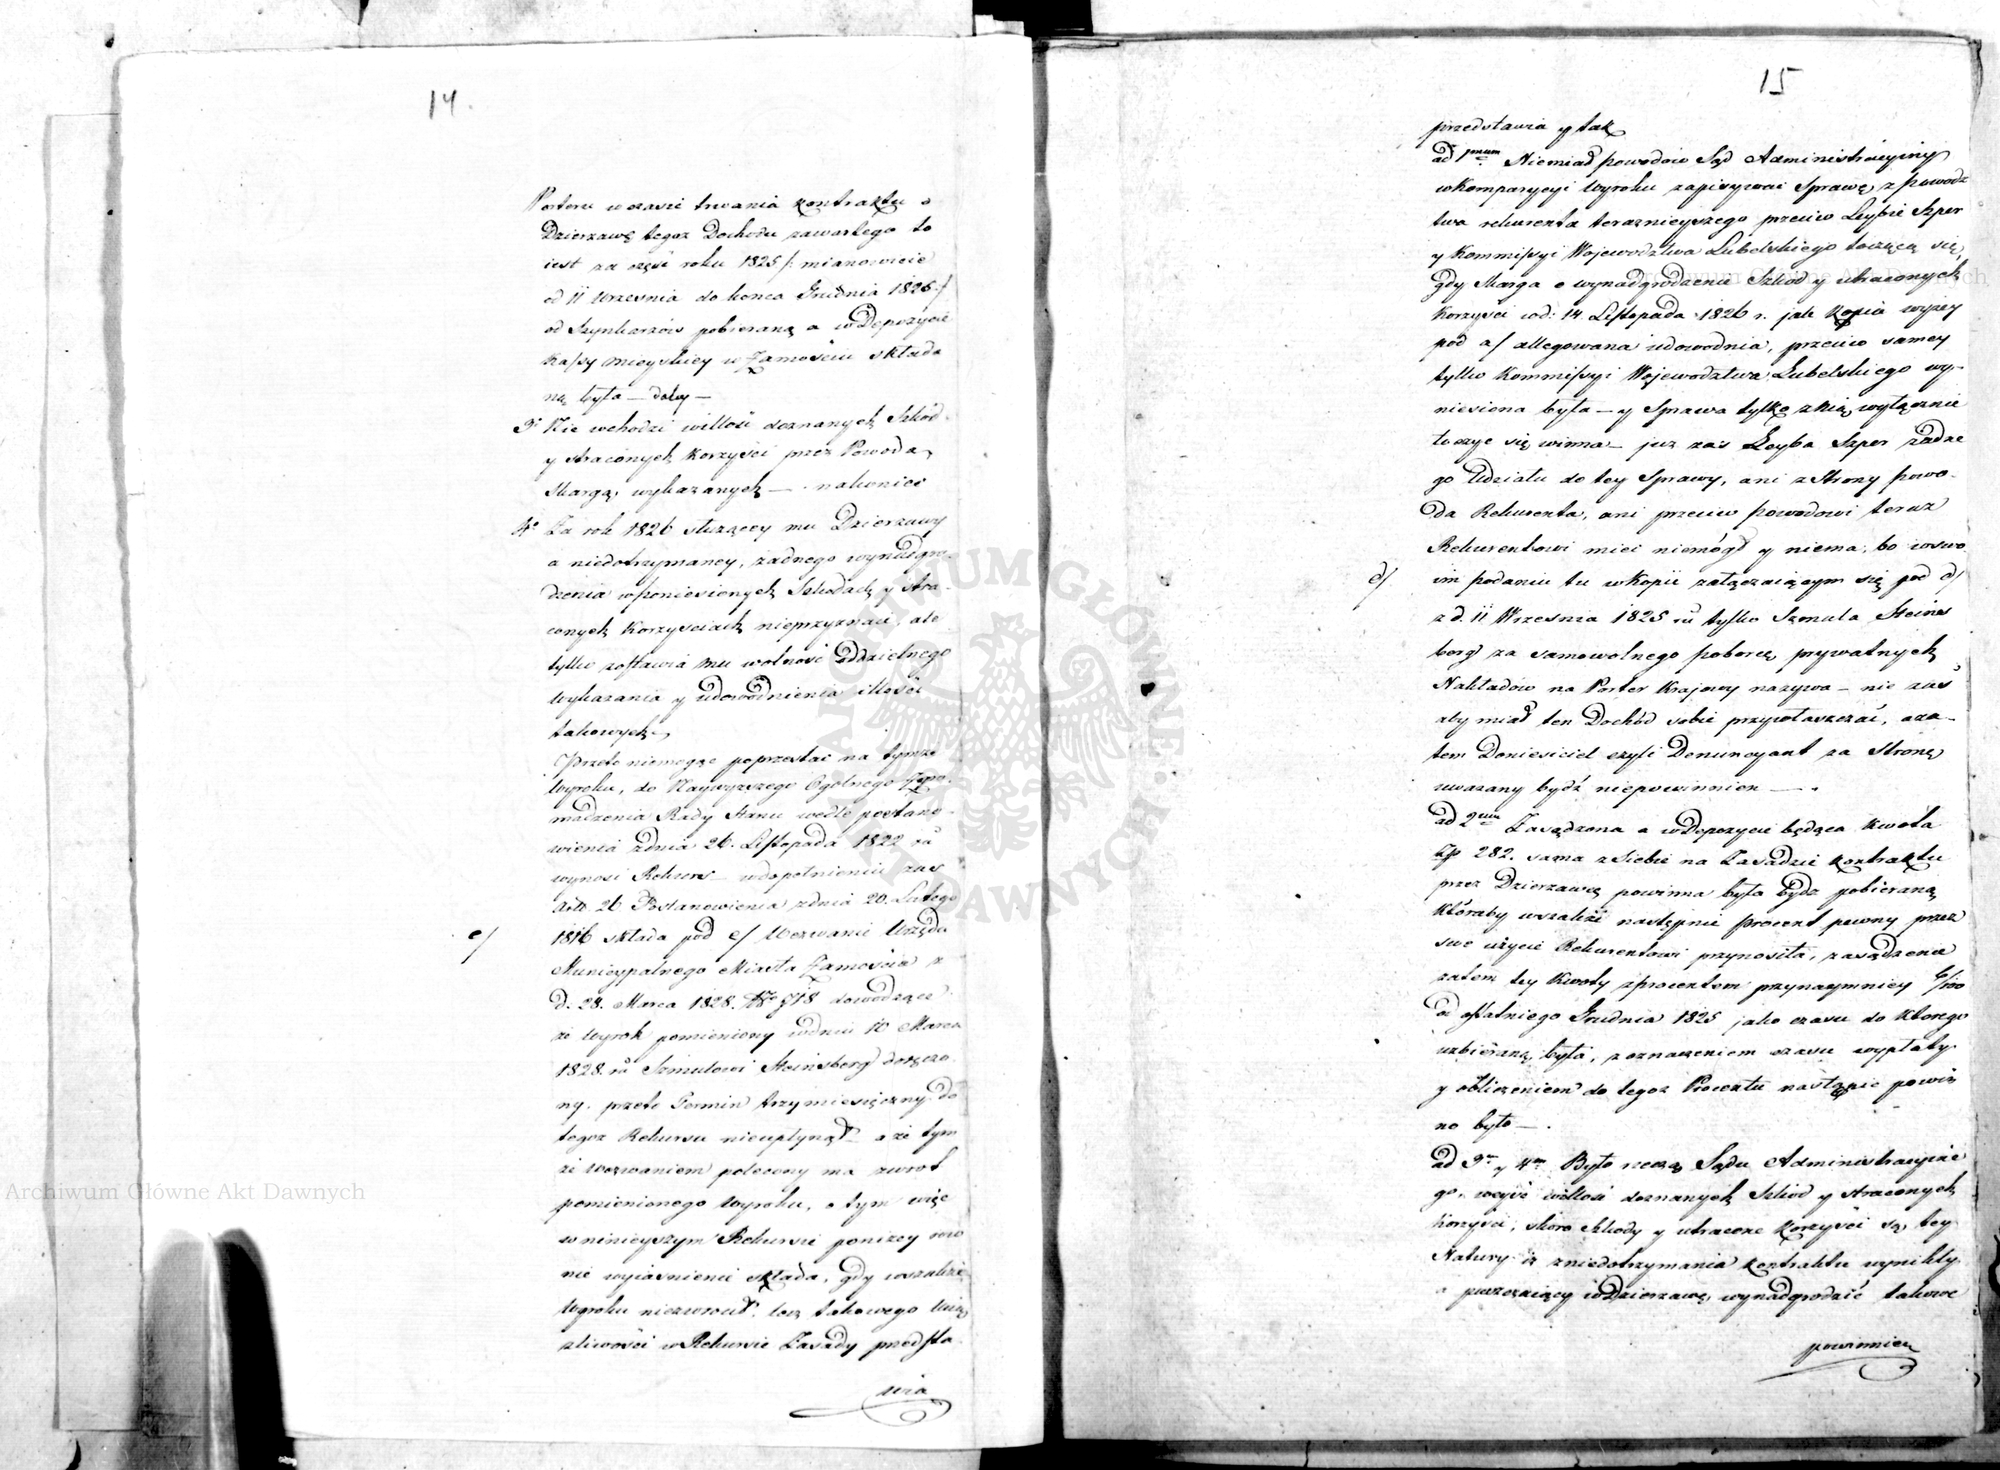 14.
Porteru w czasie trwania kontraktu o
Dzierzawę tegoz Dochodu zawartego to
iest za część roku 1825 /: mianowicie
od 11 Wrzesnia do konca Grudnia 1825 :/
od Szynkarzów pobieraną a w Depozycie
Kassy Mieyskiey w Zamościu składa
ną była — daley —
3° Nie wchodzi w ilość doznanych Szkód
y straconych Korzyści przez Powoda
Skargą wykazanych — nakoniec
4° Za rok 1826 służącey mu Dzierzawy
a niedotrzymaney, żadnego wynadgro-
dzenia w poniesionych Szkodach y stra-
conych Korzysciach nieprzyznaie, ale
tylko zostawia mu wolność oddzielnego
wykazania y udowodnienia ilości
takowych
Przeto niemogąc poprzestać na tymże
Wyroku, do Naywyższego Ogolnego Zgro-
madzenia Rady Stanu wedle postano-
wienia z dnia 26. Listopada 1822 ru
wynosi Rekurs — w dopełnieniu zas
Artu 26 Postanowienia z dnia 20. Lutego
e/
1816 składa pod e/ Wezwanie Urzędu
Municypalnego Miasta Zamościa z
d. 28. Marca 1828. No 518 dowodzące
że Wyrok pomieniony w dniu 10 Marca
1828. ru Szmulowi Steinsberg doręczo-
ny, przeto Termin trzymiesięczny do
tegoz Rekursu nieupłynął — a że tym
że wezwaniem polecony ma zwrot
pomienionego Wyroku, o tym więc
w ninieyszym Rekursie poniżey
nie wyiasnienie składa, gdy wszakże
Wyroku niezwrócił, lecz takowego
żliwości w Rekursie Zasady przedsta-
wia
15
przedstawia y tak
ad 1mum Niemiał powodów Sąd Administracyiny
w Komparycyi Wyroku zapisywać Sprawę, z powodz
twa rekurenta teraznieyszego przeciw Leybie Szper
y Kommissyi Województwa Lubelskiego toczącą się,
gdy Skarga o wynadgrodzenie Szkód y utraconych
Korzyści w d: 14 Listopada 1826 r. jak Kopia wyżey
pod a/ allegowana udowodnia, przeciw samey
tylko Kommissyi Województwa Lubelskiego wy-
niesiona była — y Sprawa tylko z nią wyłącznie
toczyć się winna — już zaś Leyba Szper żadne
go Udziału do tey Sprawy, ani z Strony Powo-
da Rekurenta, ani przeciw powodowi teraz
Rekurentowi mieć niemógł y niema, bo w swo
d/
im podaniu tu w Kopii załączaiącym się pod d/
z d. 11 Wrzesnia 1825 ru tylko Szmula Steins
berg za samowolnego poborcę prywatnych
Nakładów na Porter Krajowy nazywa — nie zas
aby miał ten Dochód sobie przywłaszczać, aza-
tem Doniesiciel czyli Denuncyant za Stronę
uważany bydź niepowinnien —.
ad 2um Zasądzona a w Depozycie będąca Kwota
Zp 282. sama z Siebie na Zasadzie Kontraktu
przez Dzierzawcę powinna była bydz pobieraną
któraby wszakże następnie procent pewny przez
swe użycie Rekurentowi przynosiła, zasądzenie
zatem tey Kwoty z procentem przynaymniey 6/100
od ostatniego Grudnia 1825 jako czasu do którego
uzbieraną była, z oznaczeniem czasu wypłaty
y obliczeniem do tegoz Procentu nastąpić powin
no było —.
ad 3m y 4m Było rzeczą Sądu Administracyine
go, weyść w ilości doznanych Szkód y straconych
korzyści, skoro Szkody y utracone Korzyści są tey
Natury iż z niedotrzymania Kontraktu wynikły,
a puszczaiący w Dzierzawę wynadgrodzić takowe
powinnien
Archiwum Główne Akt Dawnych
Archiwum Główne Akt Dawnych
ARCHIWUM GŁÓWNE AKT DAWNYCH